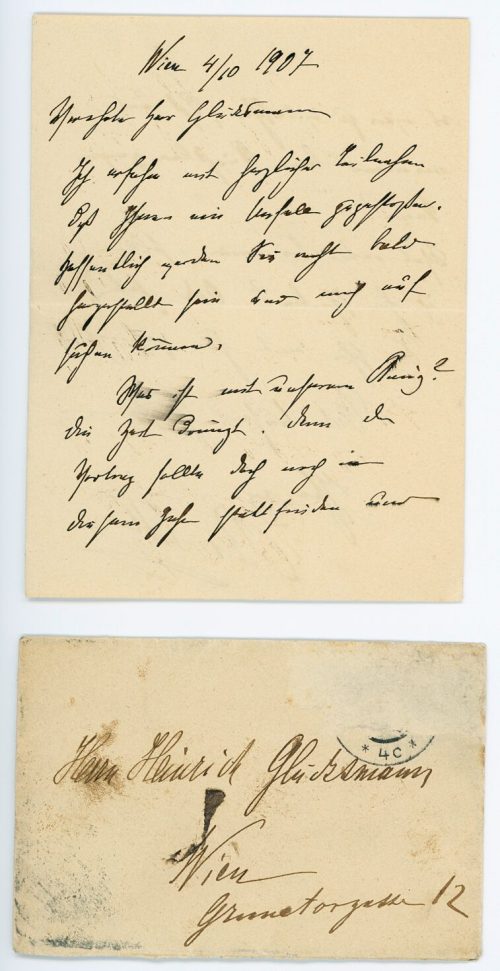 Wien 4/10 1907
Verehrter Herr Glücksmann
Ich erfahre mit herzlicher Teilnahme
daß Ihnen ein Unfall zugestoßen.
Hoffentlich werden Sie recht bald
hergestellt sein und mich auf
suchen können.
Was ist mit unserem Ring?
die Zeit drängt. denn der
Vortrag sollte doch noch im
diesem Jahr stattfinden und
* 4c *
Herrn Heinrich Glücksmann
Wien
Grünetorgasse 12